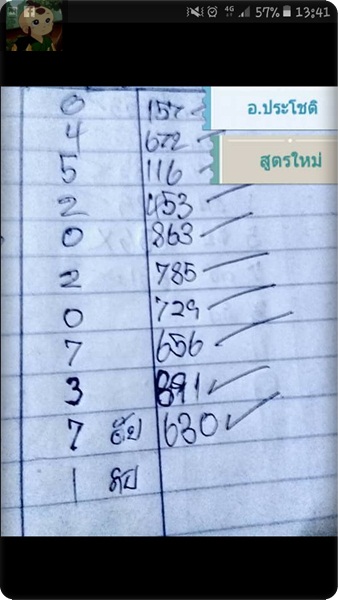 4G 57% 13:41
อ.ประโชติ
สูตรใหม่
0 157
4 672
5 116
2 453
0 863
2 785
0 729
7 656
3 891
7 ดับ 630
1 ดับ